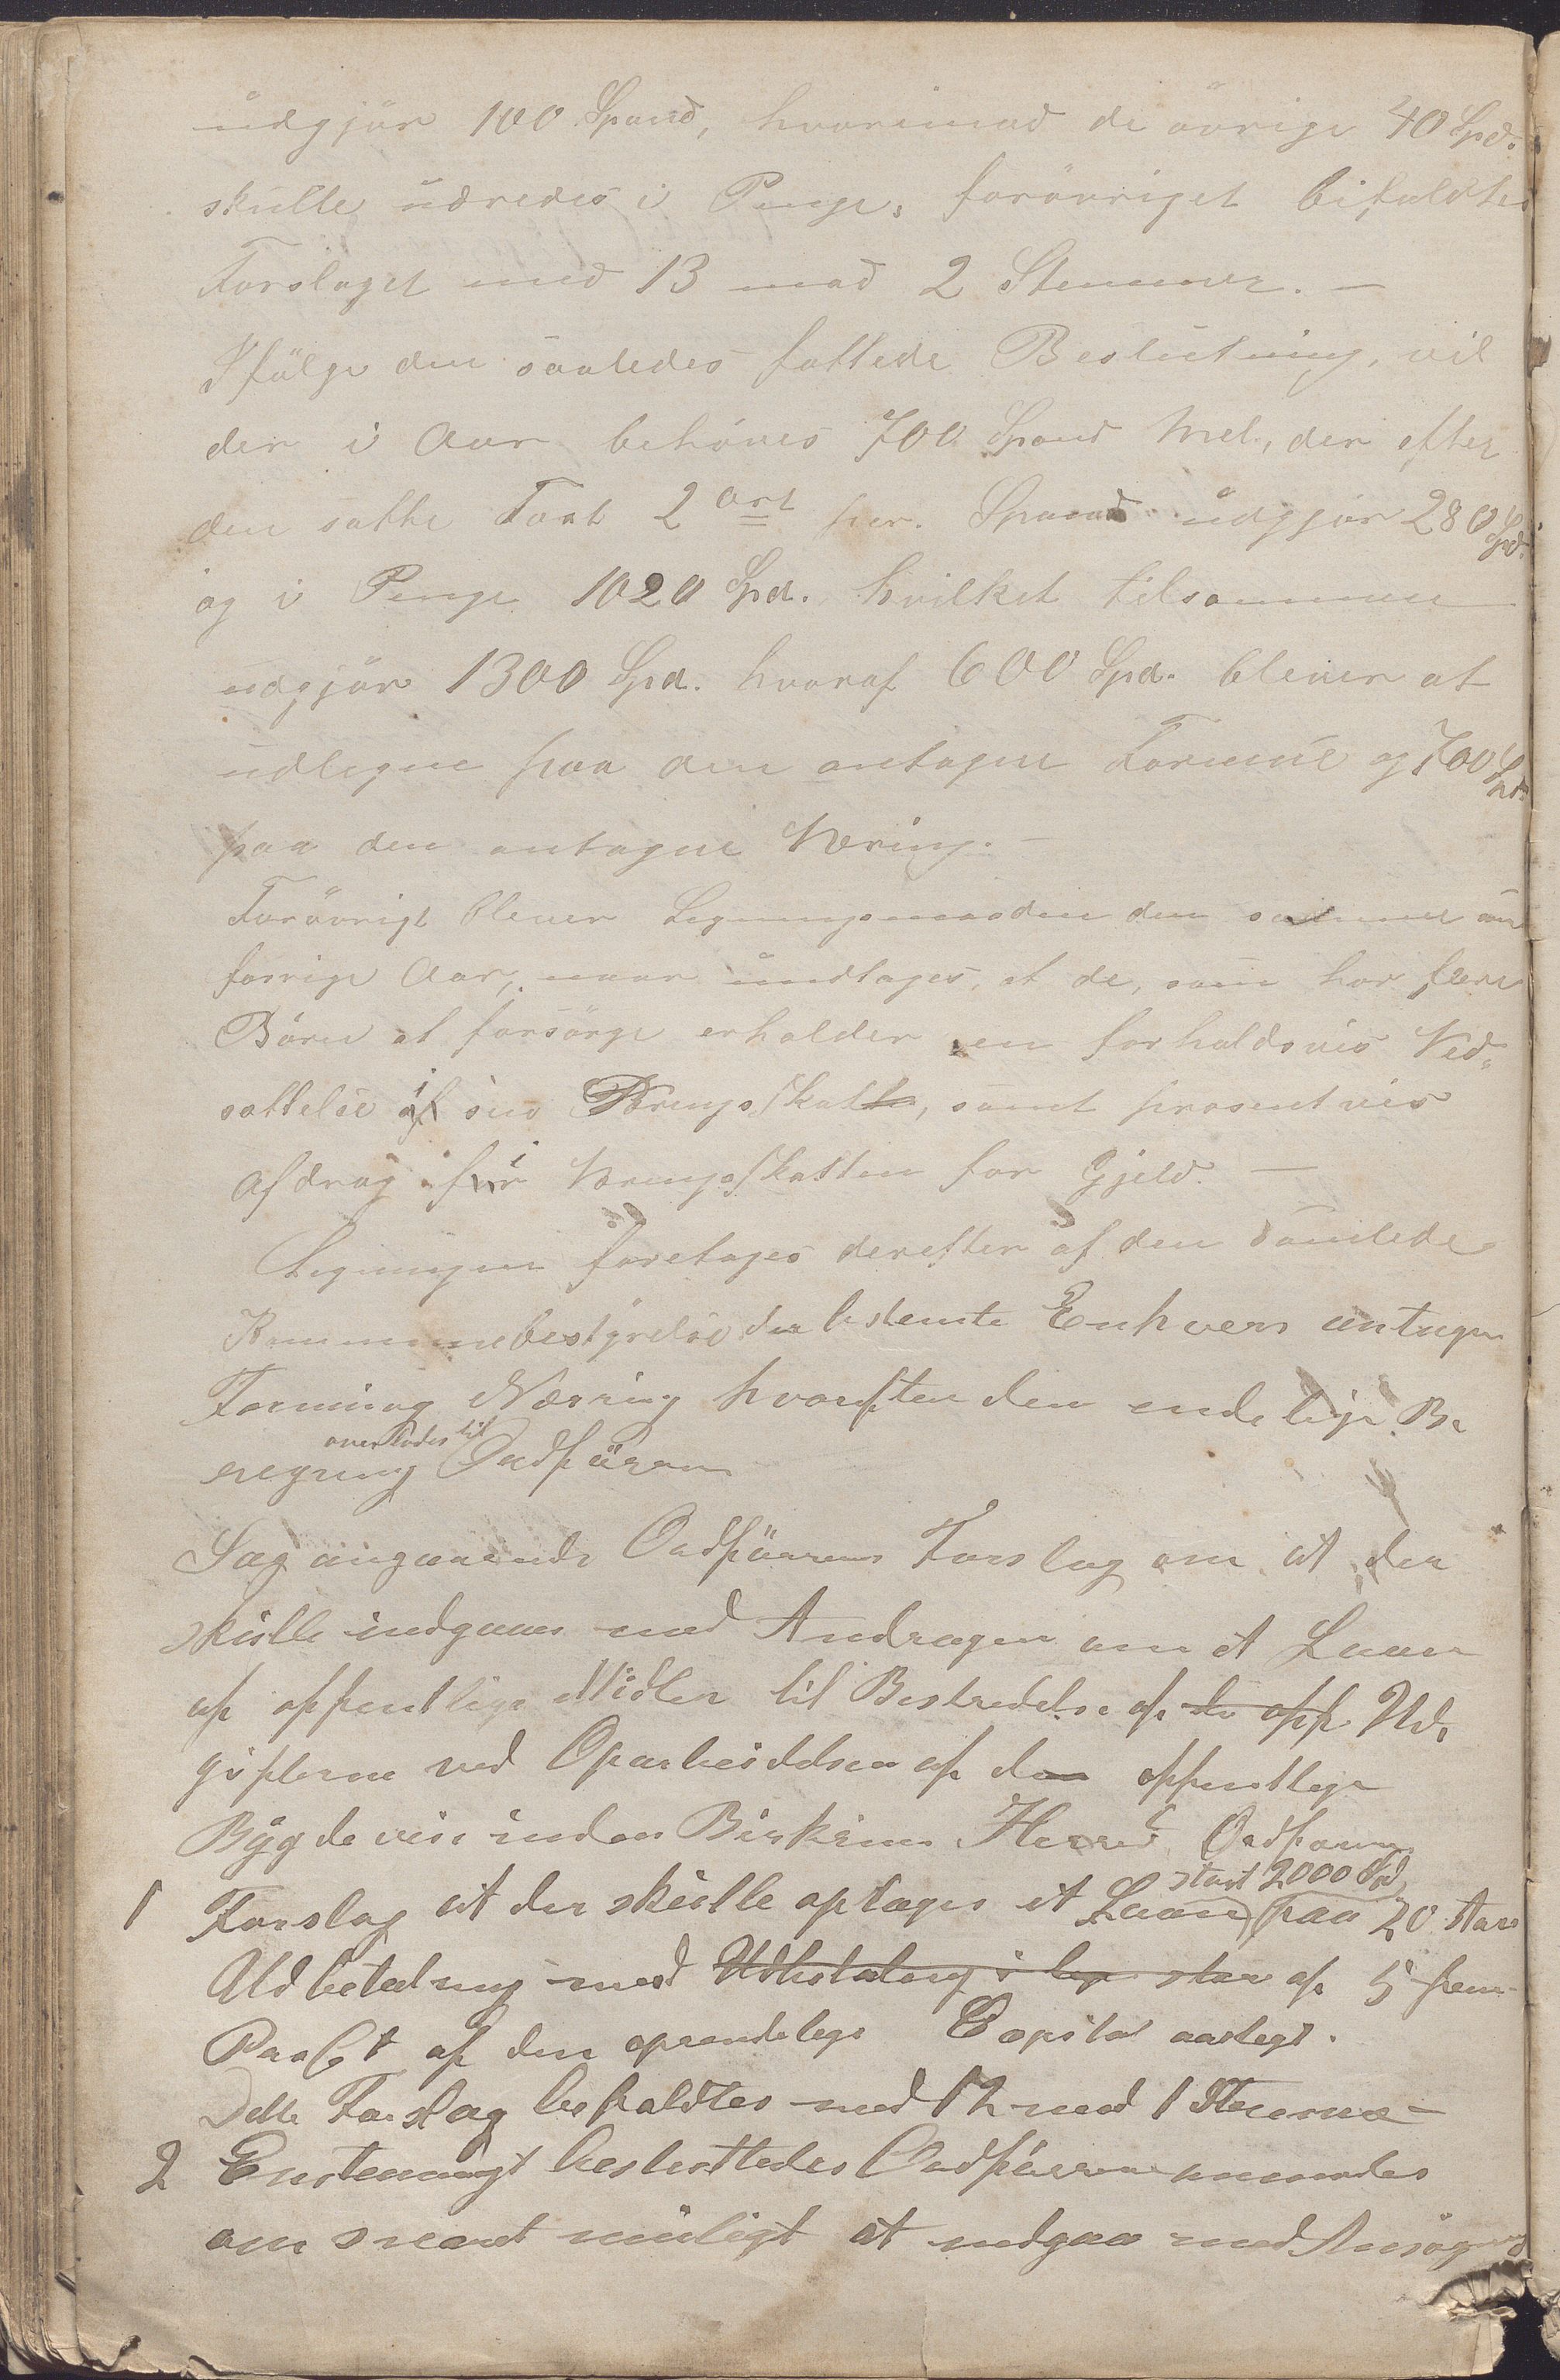 udgjör 100 Spand, hvorimod de övrige 40 Spd.
skulle udredes i Penge, forövriget bifaldtes
Forslaget med 13 mod 2 Stemmer. —
Ifölge den saaledes fattede Beslutning, vil
der i Aar behöves 700 Spand Mel, der efter
den satte Taxt 2 ort per. Spand udgjör 280 Spd.
og i Penge 1020 Spd. hvilket tilsammen
udgjör 1300 Spd. hvoraf 600 Spd. bliver at
udligne paa den antagne Formue og 700 Spd.
paa den antagne Næring. —
Forövrigt bliver Ligningsmaaden den samme som
forrige Aar, naar undtages, at de, som har flere
Börn at forsörge erholder en forholdsvis Ned-
sættelse i sin Næringsskat, samt prosentvis
Afdrag i Næringsskatten for Gjeld. —
Ligningen foretages derefter af den samlede
Kommunebestyrelse der bestemte Enhvers antagne
Formue og Næring hvorefter den endelige Be
regning overlodes til Ordföreren
Sag angaaende Ordförerens Forslag om at der
skulle indgaaes med Andragen om et Laan
af offentlige Midler til Bestridelse af de off Ud-
gifterne ved Oparbeidelsen af den offentlige
Bygdevei inden Birkrem Herred Ordförerens
1 Forslag at der skulle optages et Laan stort 2000 Spd paa 20 Aars
Udbetalning med Udbetaling af 5 fem
Procent af den oprindelige Capital aarligt.
Dette Forslag bifaldtes med 12 mod 1 Stemme —
2 Enstemmigt besluttedes Ordföreren anmodes
om snearst muligt at indgaa med Ansögning